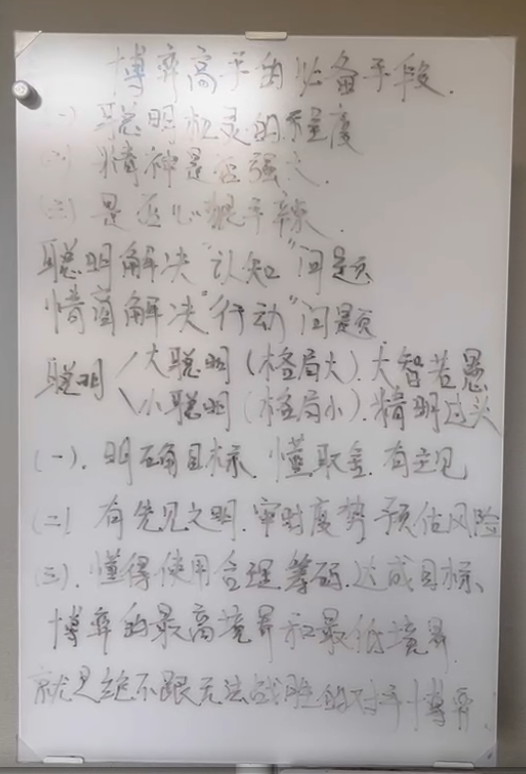 博弈高手的必备手段.
(一) 聪明机灵的程度
(二) 精神是否强大.
(三) 是否心狠手辣.
聪明解决"认知"问题
情商解决"行动"问题
聪明 大聪明(格局大).大智若愚
小聪明(格局小).精明过头
(一). 明确目标. 懂取舍. 有主见
(二) 有先见之明.审时度势 预估风险
(三). 懂得使用合理筹码.达成目标.
博弈的最高境界和最低境界.
就是绝不跟无法战胜的对手博弈.